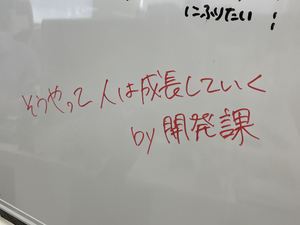 にふりたい!
そうやって人は成長していく
by 開発課